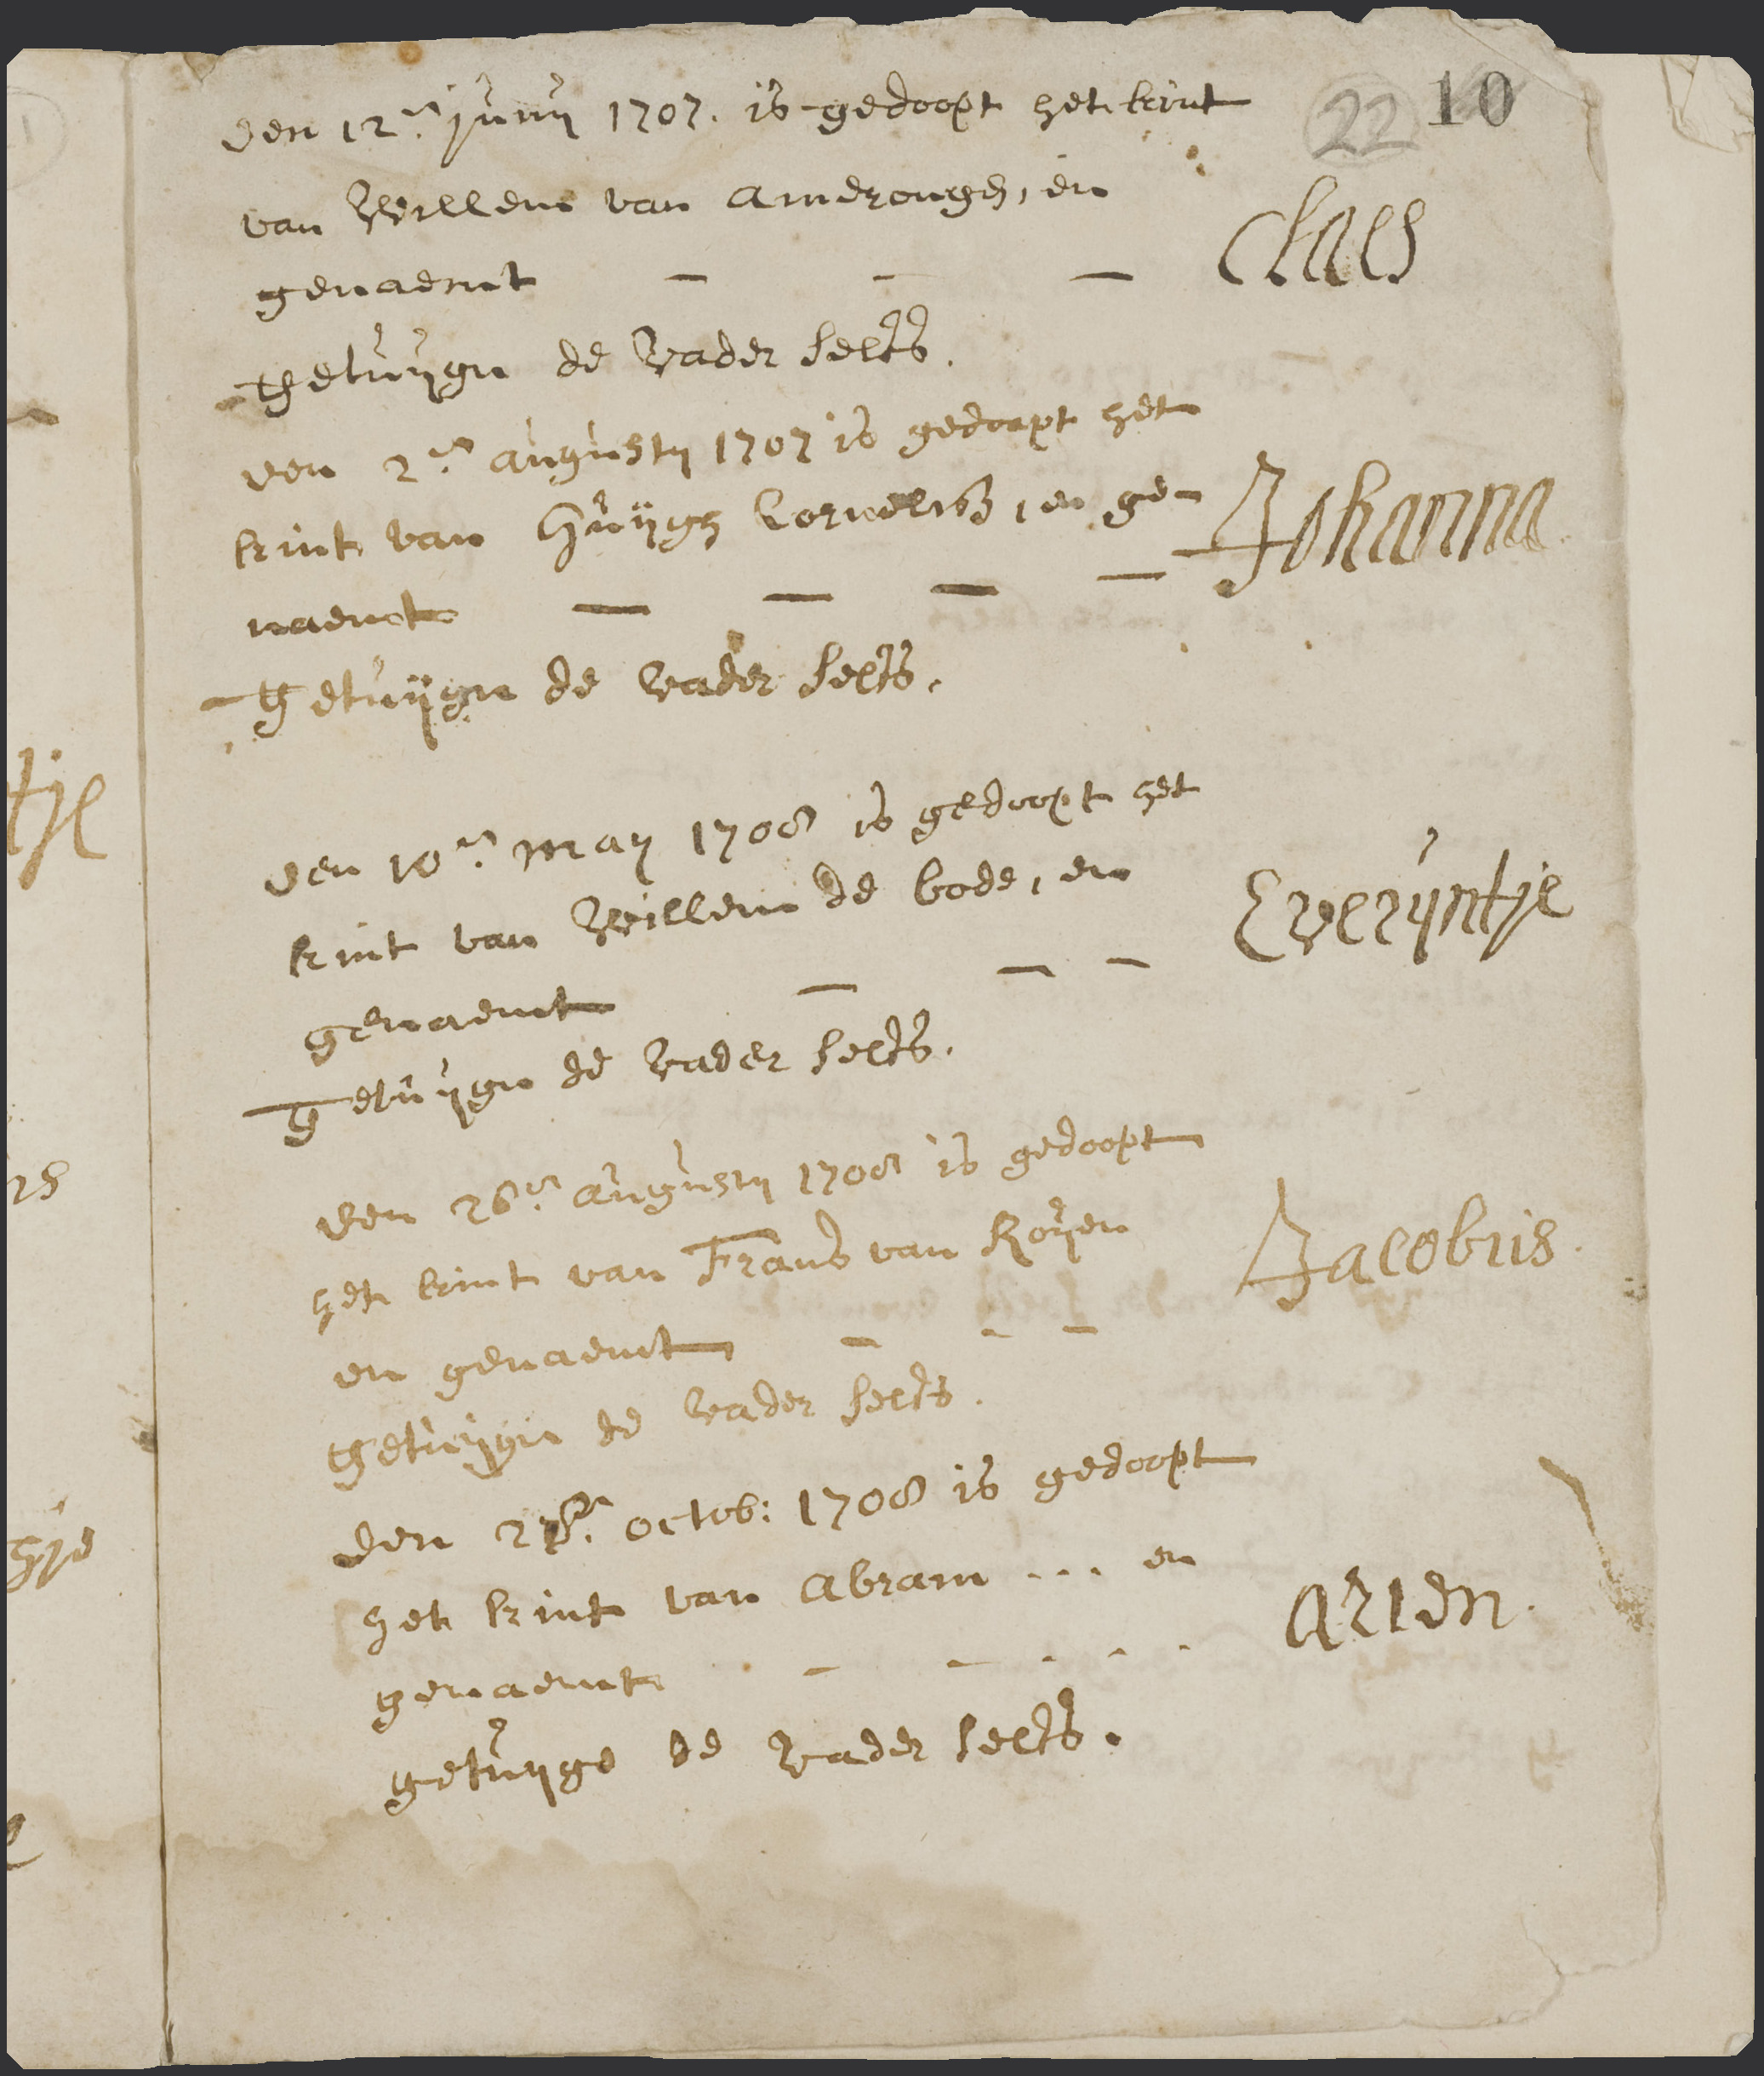 22 10
den 12en Junij 1707. is gedoopt het kint
van Willem van Amerongh, en
genaemt — — — Claes
Getuijgn de Vader selfs.
den 2en augustij 1707 is gedoopt het
kint van Huijgh Cornelisz, en ge-
naemt — — — — Johanna
Getuijgn de Vader selfs.
den 10en may 1708 is gedoopt het
kint van Willem de bode, en
genaemt — — — Everijntje
Getuijgn de Vader selfs.
den 26en augustij 1708 is gedoopt
het kint van Frans van Royen
en genaemt - - - Jacobus.
Getuijgn de Vader selfs.
den octob: 1708 is gedoopt
het kint van Abram ... en
genaemt - - - - - Arien.
getuijge de Vader selfs.
tje
us
hje